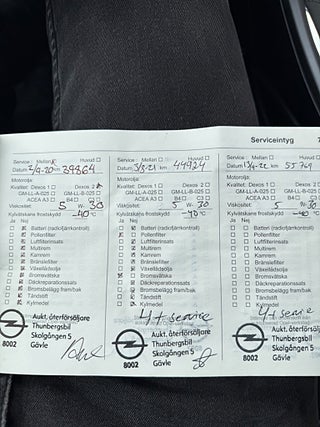 Serviceintyg
Service: Mellan Huvud
Datum 2/9-20 km 39864
Motorolja:
Kvalitet: Dexos 1 Dexos 2
GM-LL-A-025 GM-LL-B-025
ACEA A3 B4 C3
Viskositet: 5 W- 30
Kylvätskans frostskydd -40 °C
Ja Nej
Batteri (radiofjärrkontroll)
Pollenfilter
Luftfilterinsats
Multirem
Kamrem
Bränslefilter
Växellådsolja
Bromsvätska
Däckreparationssats
Bromsbelägg fram/bak
Tändstift
Kylmedel
Aukt. återförsäljare
Thunbergsbil
Skolgången 5
8002 Gävle
Service: Mellan Huvud
Datum 3/3-21 km 44924
Motorolja:
Kvalitet: Dexos 1 Dexos 2
GM-LL-A-025 GM-LL-B-025
ACEA A3 B4 C3
Viskositet: 5 W-
Kylvätskans frostskydd °C
Ja Nej
Batteri (radiofjärrkontroll)
Pollenfilter
Luftfilterinsats
Multirem
Kamrem
Bränslefilter
Växellådsolja
Bromsvätska
Däckreparationssats
Bromsbelägg fram/bak
Tändstift
Kylmedel
4+ service
Aukt. återförsäljare
Thunbergsbil
Skolgången 5
8002 Gävle
Service: Mellan Huvud
Datum km 55769
Motorolja:
Kvalitet: Dexos 1 Dexos 2
GM-LL-A-025 GM-LL-B-025
ACEA A3 B4 C3
Viskositet: 5 W- 30
Kylvätskans frostskydd -40 °C
Ja Nej
Batteri (radiofjärrkontroll)
Pollenfilter
Luftfilterinsats
Multirem
Kamrem
Bränslefilter
Växellådsolja
Bromsvätska
Däckreparationssats
Bromsbelägg fram/bak
Tändstift
Kylmedel
4+ service
Aukt. återförsäljare
Thunbergsbil
Skolgången 5
8002 Gävle